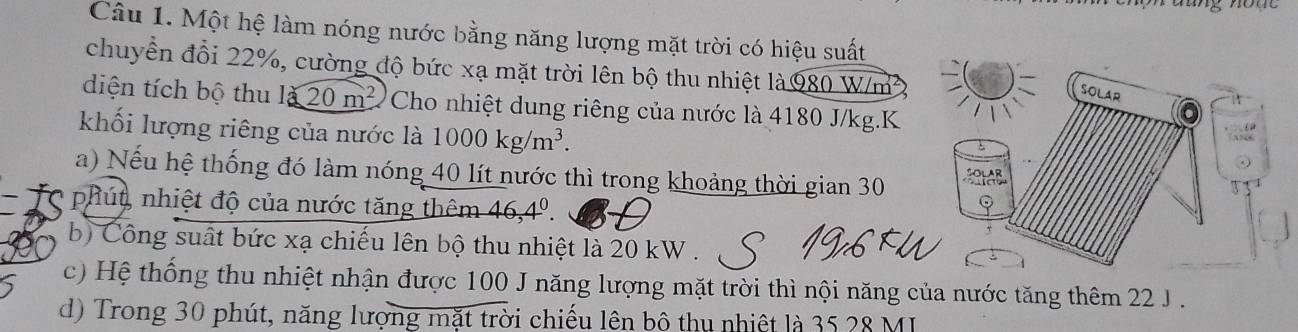 Câu 1. Một hệ làm nóng nước bằng năng lượng mặt trời có hiệu suất
chuyển đổi 22%, cường độ bức xạ mặt trời lên bộ thu nhiệt là 980 W/m²,
diện tích bộ thu là 20 m². Cho nhiệt dung riêng của nước là 4180 J/kg.K
khối lượng riêng của nước là 1000 kg/m³.
SOLAR
a) Nếu hệ thống đó làm nóng 40 lít nước thì trong khoảng thời gian 30
SOLAR
phút, nhiệt độ của nước tăng thêm 46,4⁰. Đ
b) Công suất bức xạ chiếu lên bộ thu nhiệt là 20 kW . S 19,6 kW
c) Hệ thống thu nhiệt nhận được 100 J năng lượng mặt trời thì nội năng của nước tăng thêm 22 J .
d) Trong 30 phút, năng lượng mặt trời chiếu lên bộ thu nhiệt là 35,28 MJ